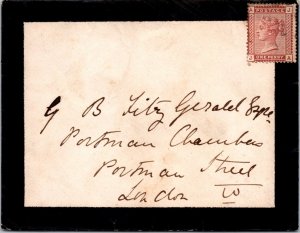 POSTAGE
ONE PENNY
J A
G B Fitz Gerald Esqre
Portman Chambers
Portman Street
London W